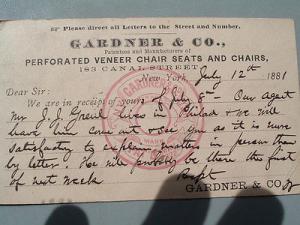 Please direct all Letters to the Street and Number.
GARDNER & CO.,
Patentees and Manufacturers of
PERFORATED VENEER CHAIR SEATS AND CHAIRS,
183 CANAL STREET,
New York, July 12th 1881
Dear Sir:
We are in receipt of yours 8 Our Agent
Mr J. J. lives in Philad & We will
have him come out & see you as it is more
satisfactory to explain matters in person than
by letter. He will probably be there the first
of next week
Respt
GARDNER & CO